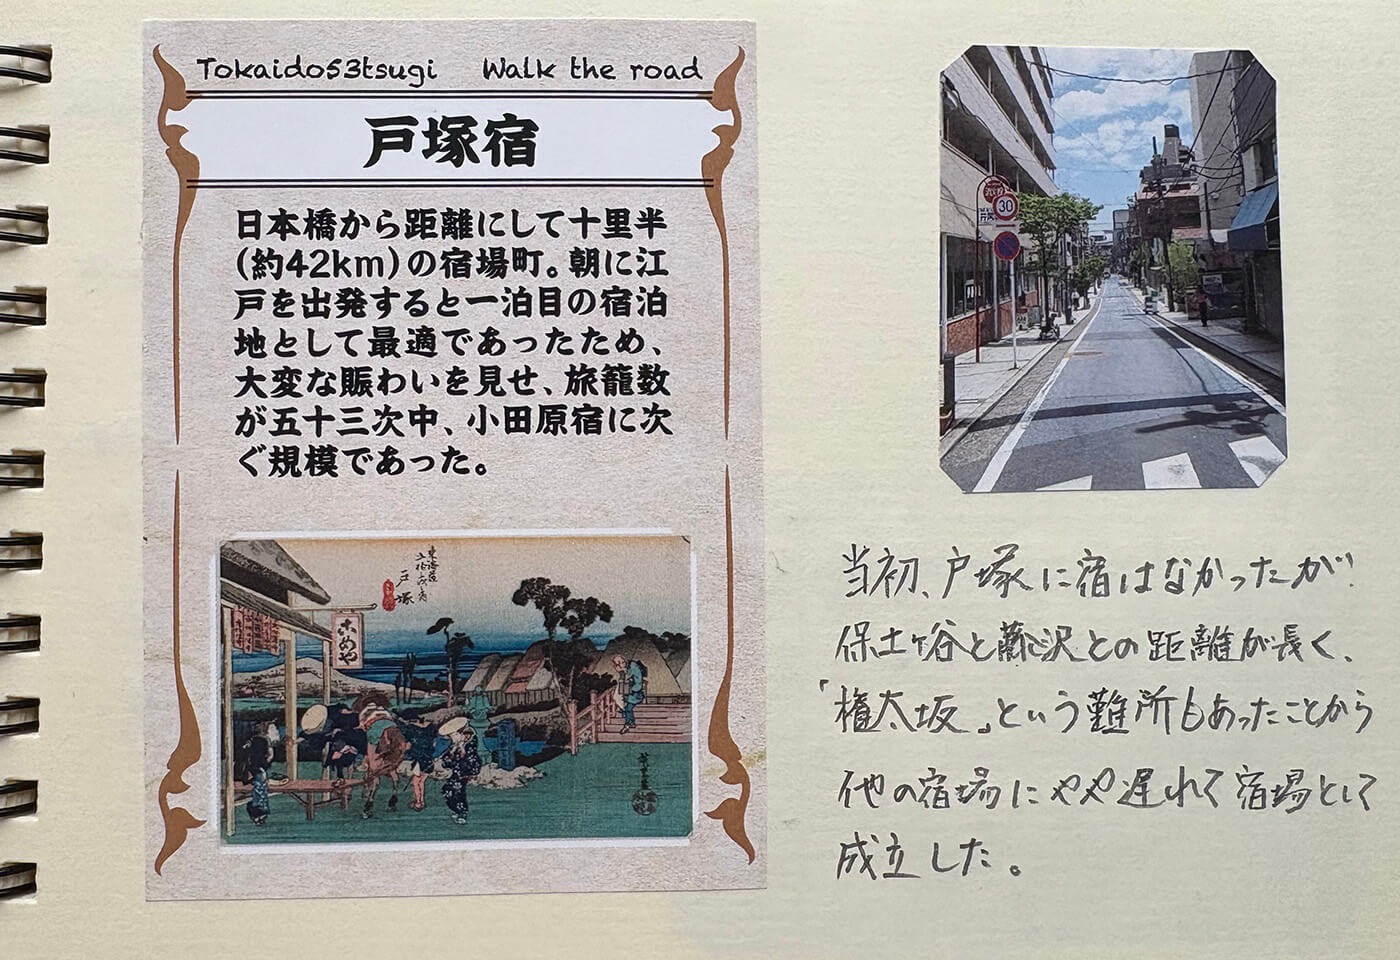 Tokaido53tsugi Walk the road
戸塚宿
日本橋から距離にして十里半
(約42km)の宿場町。朝に江
戸を出発すると一泊目の宿泊
地として最適であったため、
大変な賑わいを見せ、旅籠数
が五十三次中、小田原宿に次
ぐ規模であった。
東海道
五拾三次之内
戸塚
こめや
30
当初、戸塚に宿はなかったが、
保土ヶ谷と藤沢との距離が長く、
「権太坂」という難所もあったことから
他の宿場にやや遅れて宿場として
成立した。